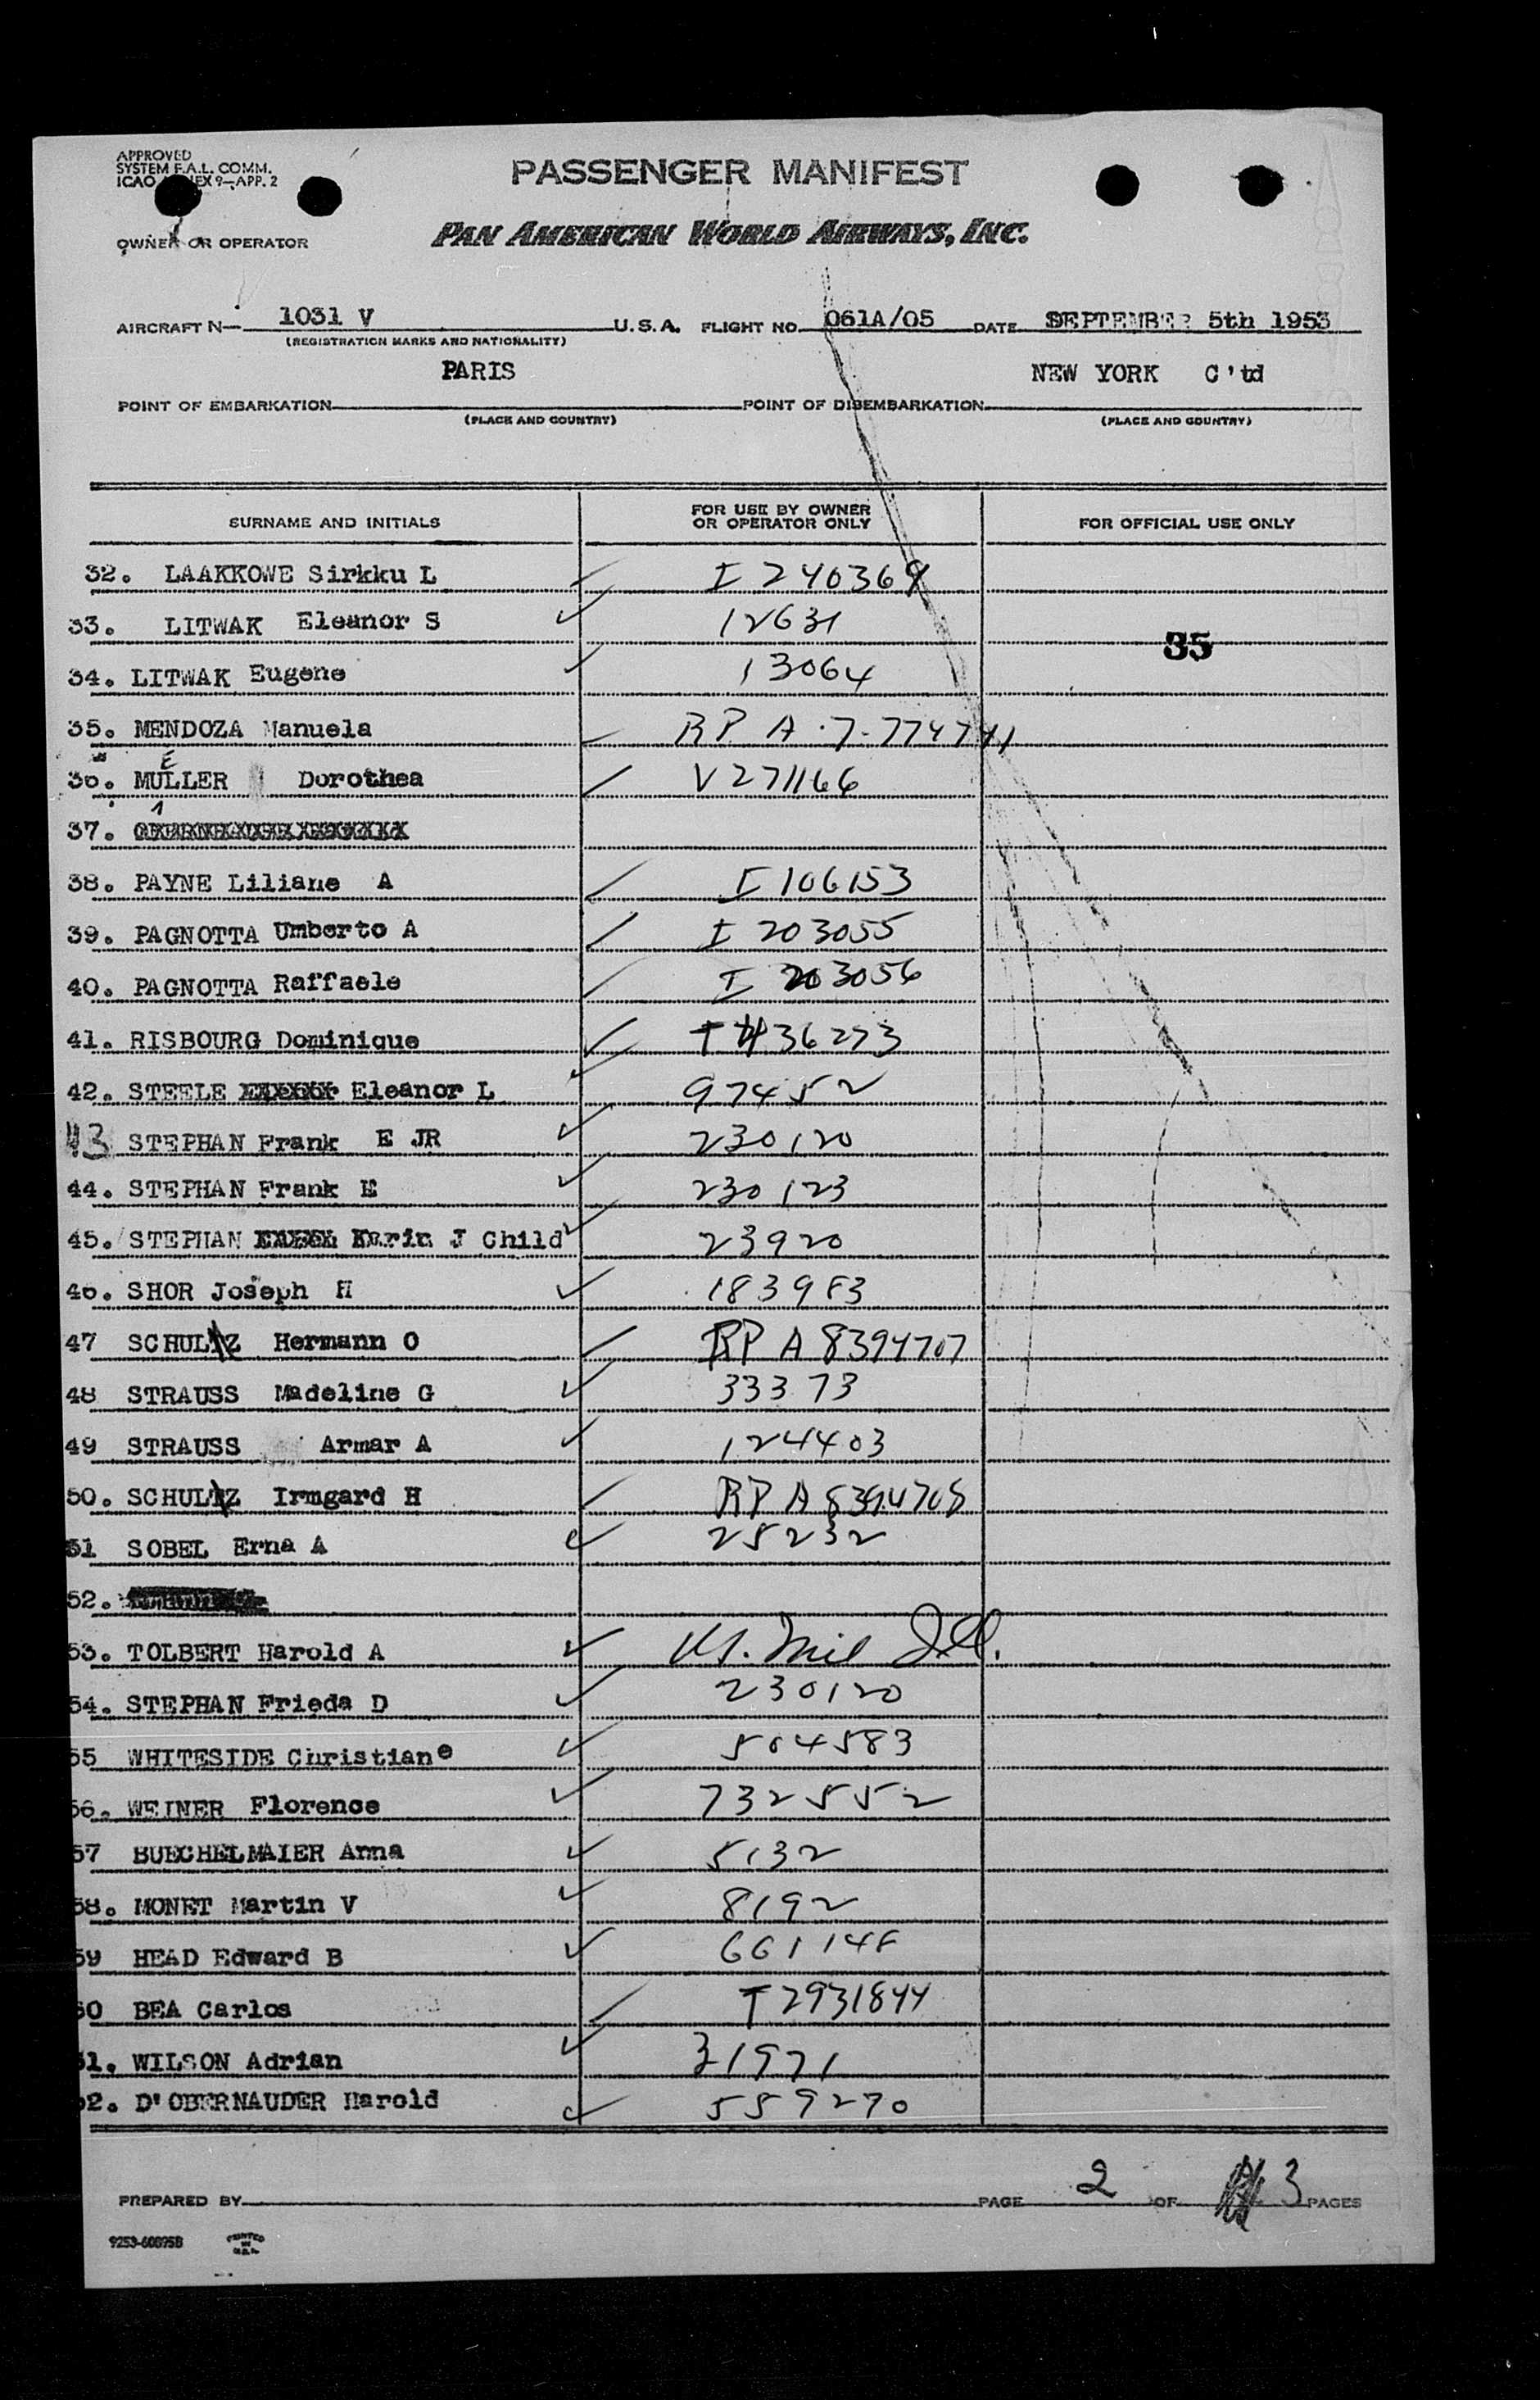 APPROVED
SYSTEM F.A.L. COMM.
ICAO ANNEX 9—APP. 2
PASSENGER MANIFEST
OWNER OR OPERATOR
PAN AMERICAN WORLD AIRWAYS, INC.
AIRCRAFT N— 1031 V U.S.A. FLIGHT NO. 061A/05 DATE SEPTEMBER 5th 1953
(REGISTRATION MARKS AND NATIONALITY)
PARIS NEW YORK C'td
POINT OF EMBARKATION POINT OF DISEMBARKATION
(PLACE AND COUNTRY) (PLACE AND COUNTRY)
SURNAME AND INITIALS FOR USE BY OWNER OR OPERATOR ONLY FOR OFFICIAL USE ONLY
32. LAAKKOWE Sirkku L I 240369
33. LITWAK Eleanor S 12631
35
34. LITWAK Eugene 13064
35. MENDOZA Manuela RP A-7-774741
36. MULLER Dorothea V271166
37.
38. PAYNE Liliane A I 106153
39. PAGNOTTA Umberto A I 203055
40. PAGNOTTA Raffaele I 203056
41. RISBOURG Dominique T 36273
42. STEELE Eleanor L 97452
43 STEPHAN Frank E JR 230120
44. STEPHAN Frank E 230123
45. STEPHAN Karin J Child 23920
46. SHOR Joseph H 183983
47 SCHULZ Hermann O RP A 8394707
48 STRAUSS Madeline G 33373
49 STRAUSS Armar A 124403
50. SCHULZ Irmgard H RP A 8394708
51 SOBEL Erna A 25232
52.
53. TOLBERT Harold A
54. STEPHAN Frieda D 230120
55 WHITESIDE Christiane 504583
56. WEINER Florence 732552
57 BUECHELMAIER Anna 5132
58. MONET Martin V 8192
59 HEAD Edward B 661148
60 BEA Carlos T 2931844
61. WILSON Adrian 31971
62. D'OBERNAUDER Harold 559270
PREPARED BY PAGE 2 OF 3 PAGES
9253-60895B PRINTED IN U.S.A.